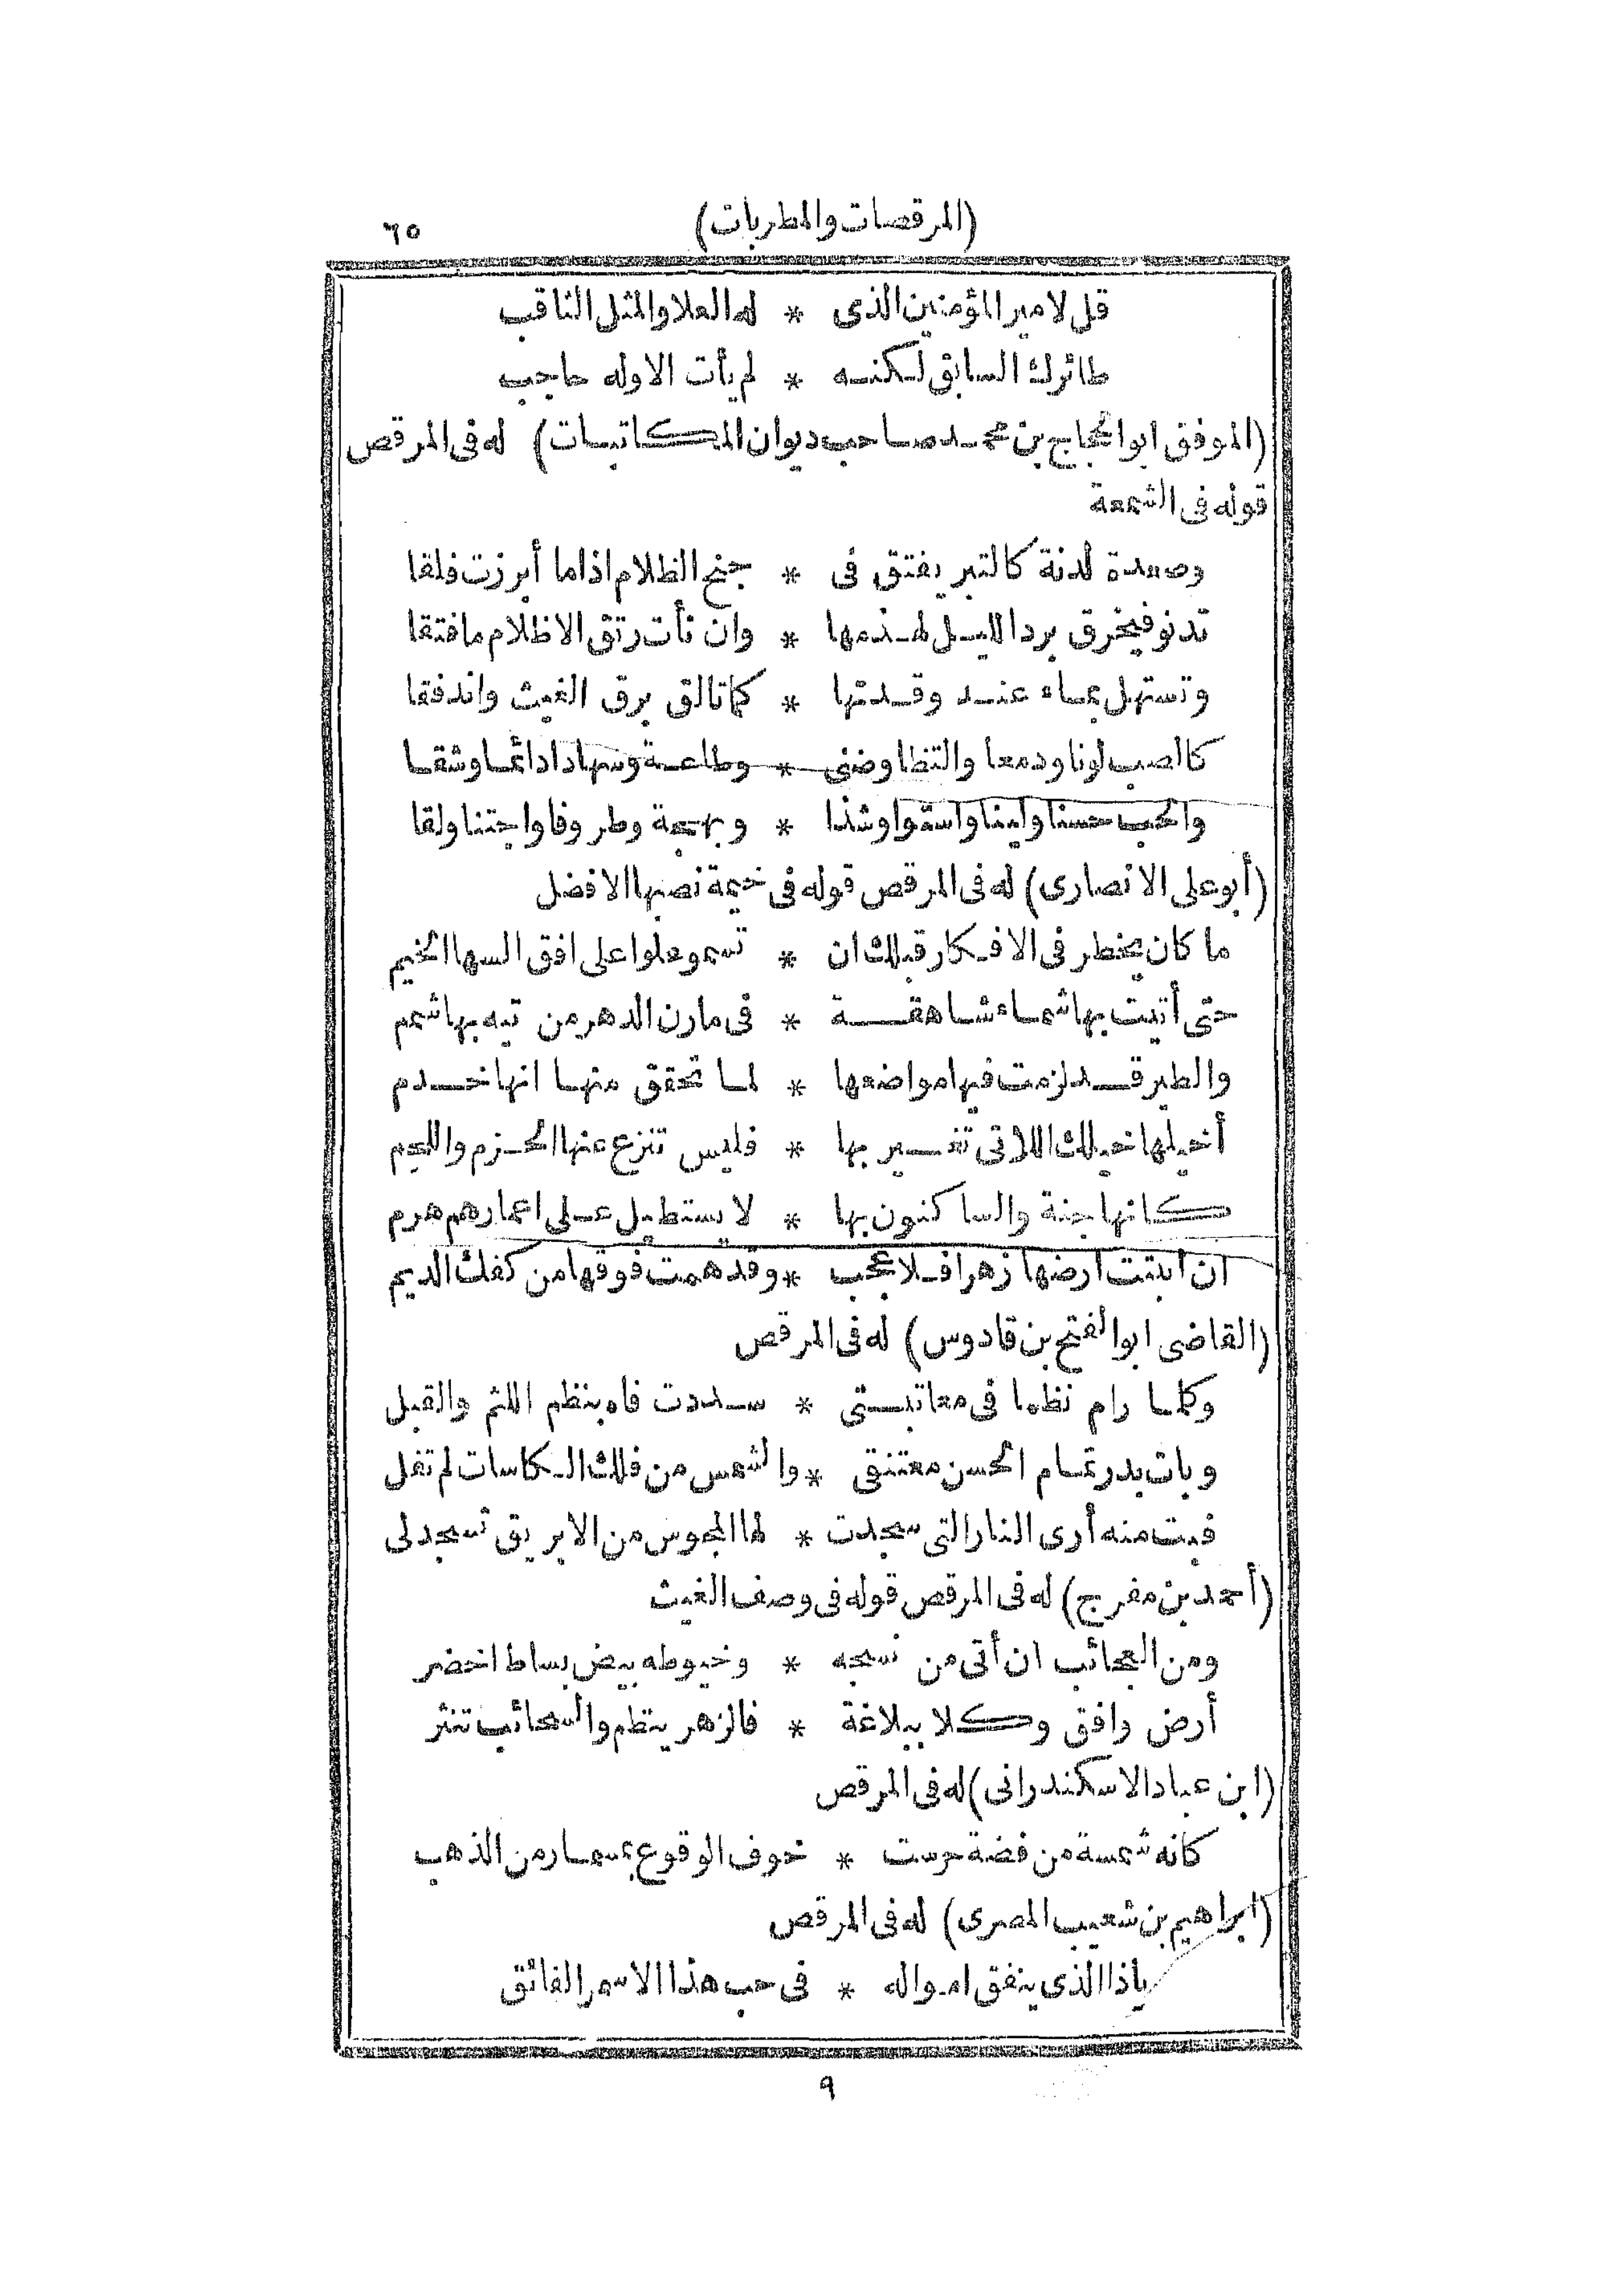 (المرقصات والمطربات)
٦٥
قل لامير المؤمنين الذى * له العلا والمثل الثاقب
طائرك السابق لكنه * لم يأت الاوله حاجب
(الموفق ابوالحجاج بن محمد صاحب ديوان المكاتبات) له فى المرقص
قوله فى الشمعة
وصعدة لدنة كالتبر يفتق فى * جنح الظلام اذا ما أبرزت فلقا
تدنو فيخرق برد الليل لهذمها * وان نأت رتق الاظلام ما فتقا
وتستهل بماء عند وقدتها * كما تالق برق الغيث واندفقا
كالصب لونا ودمعا والتظا وضنى * وطاعة وسهادا دائما وشقا
والحب حسنا ولينا واستوا وشذا * وبهجة وطروفا واجتنا ولقا
(أبو على الانصارى) له فى المرقص قوله فى خيمة نصبها الافضل
ما كان يخطر فى الافكار قبلك ان * تسمو علوا على افق السها الخيم
حتى أتيت بها شماء شاهقة * فى مارن الدهر من تيه بها شمم
والطير قد لزمت فيها مواضعها * لما تحقق منها انها خدم
أخيلها خيلك اللاتى تغير بها * فليس تنزع عنها الحزم واللجم
كانها جنة والساكنون بها * لا يستطيل على اعمارهم هرم
ان انبتت ارضها زهرا فلا عجب * وقد همت فوقها من كفك الديم
(القاضى ابو الفتح بن قادوس) له فى المرقص
وكلما رام نظما فى معاتبتى * سددت فاه بنظم اللثم والقبل
وبات بدر تمام الحسن معتنقى * والشمس من فلك الكاسات لم تفل
فبت منه أرى النار التى سجدت * لها المجوس من الابريق تسجد لى
(أحمد بن مفرج) له فى المرقص قوله فى وصف الغيث
ومن العجائب ان أتى من نسجه * وخيوطه بيض بساط اخضر
أرض وافق وكلا ببلاغة * فالزهر ينظم والسحائب تنثر
(ابن عباد الاسكندرانى) له فى المرقص
كانه شمسة من فضة حرست * خوف الوقوع بمسمار من الذهب
(ابراهيم بن شعيب المصرى) له فى المرقص
ياذا الذى ينفق امواله * فى حب هذا الاسمر الفائق
٩